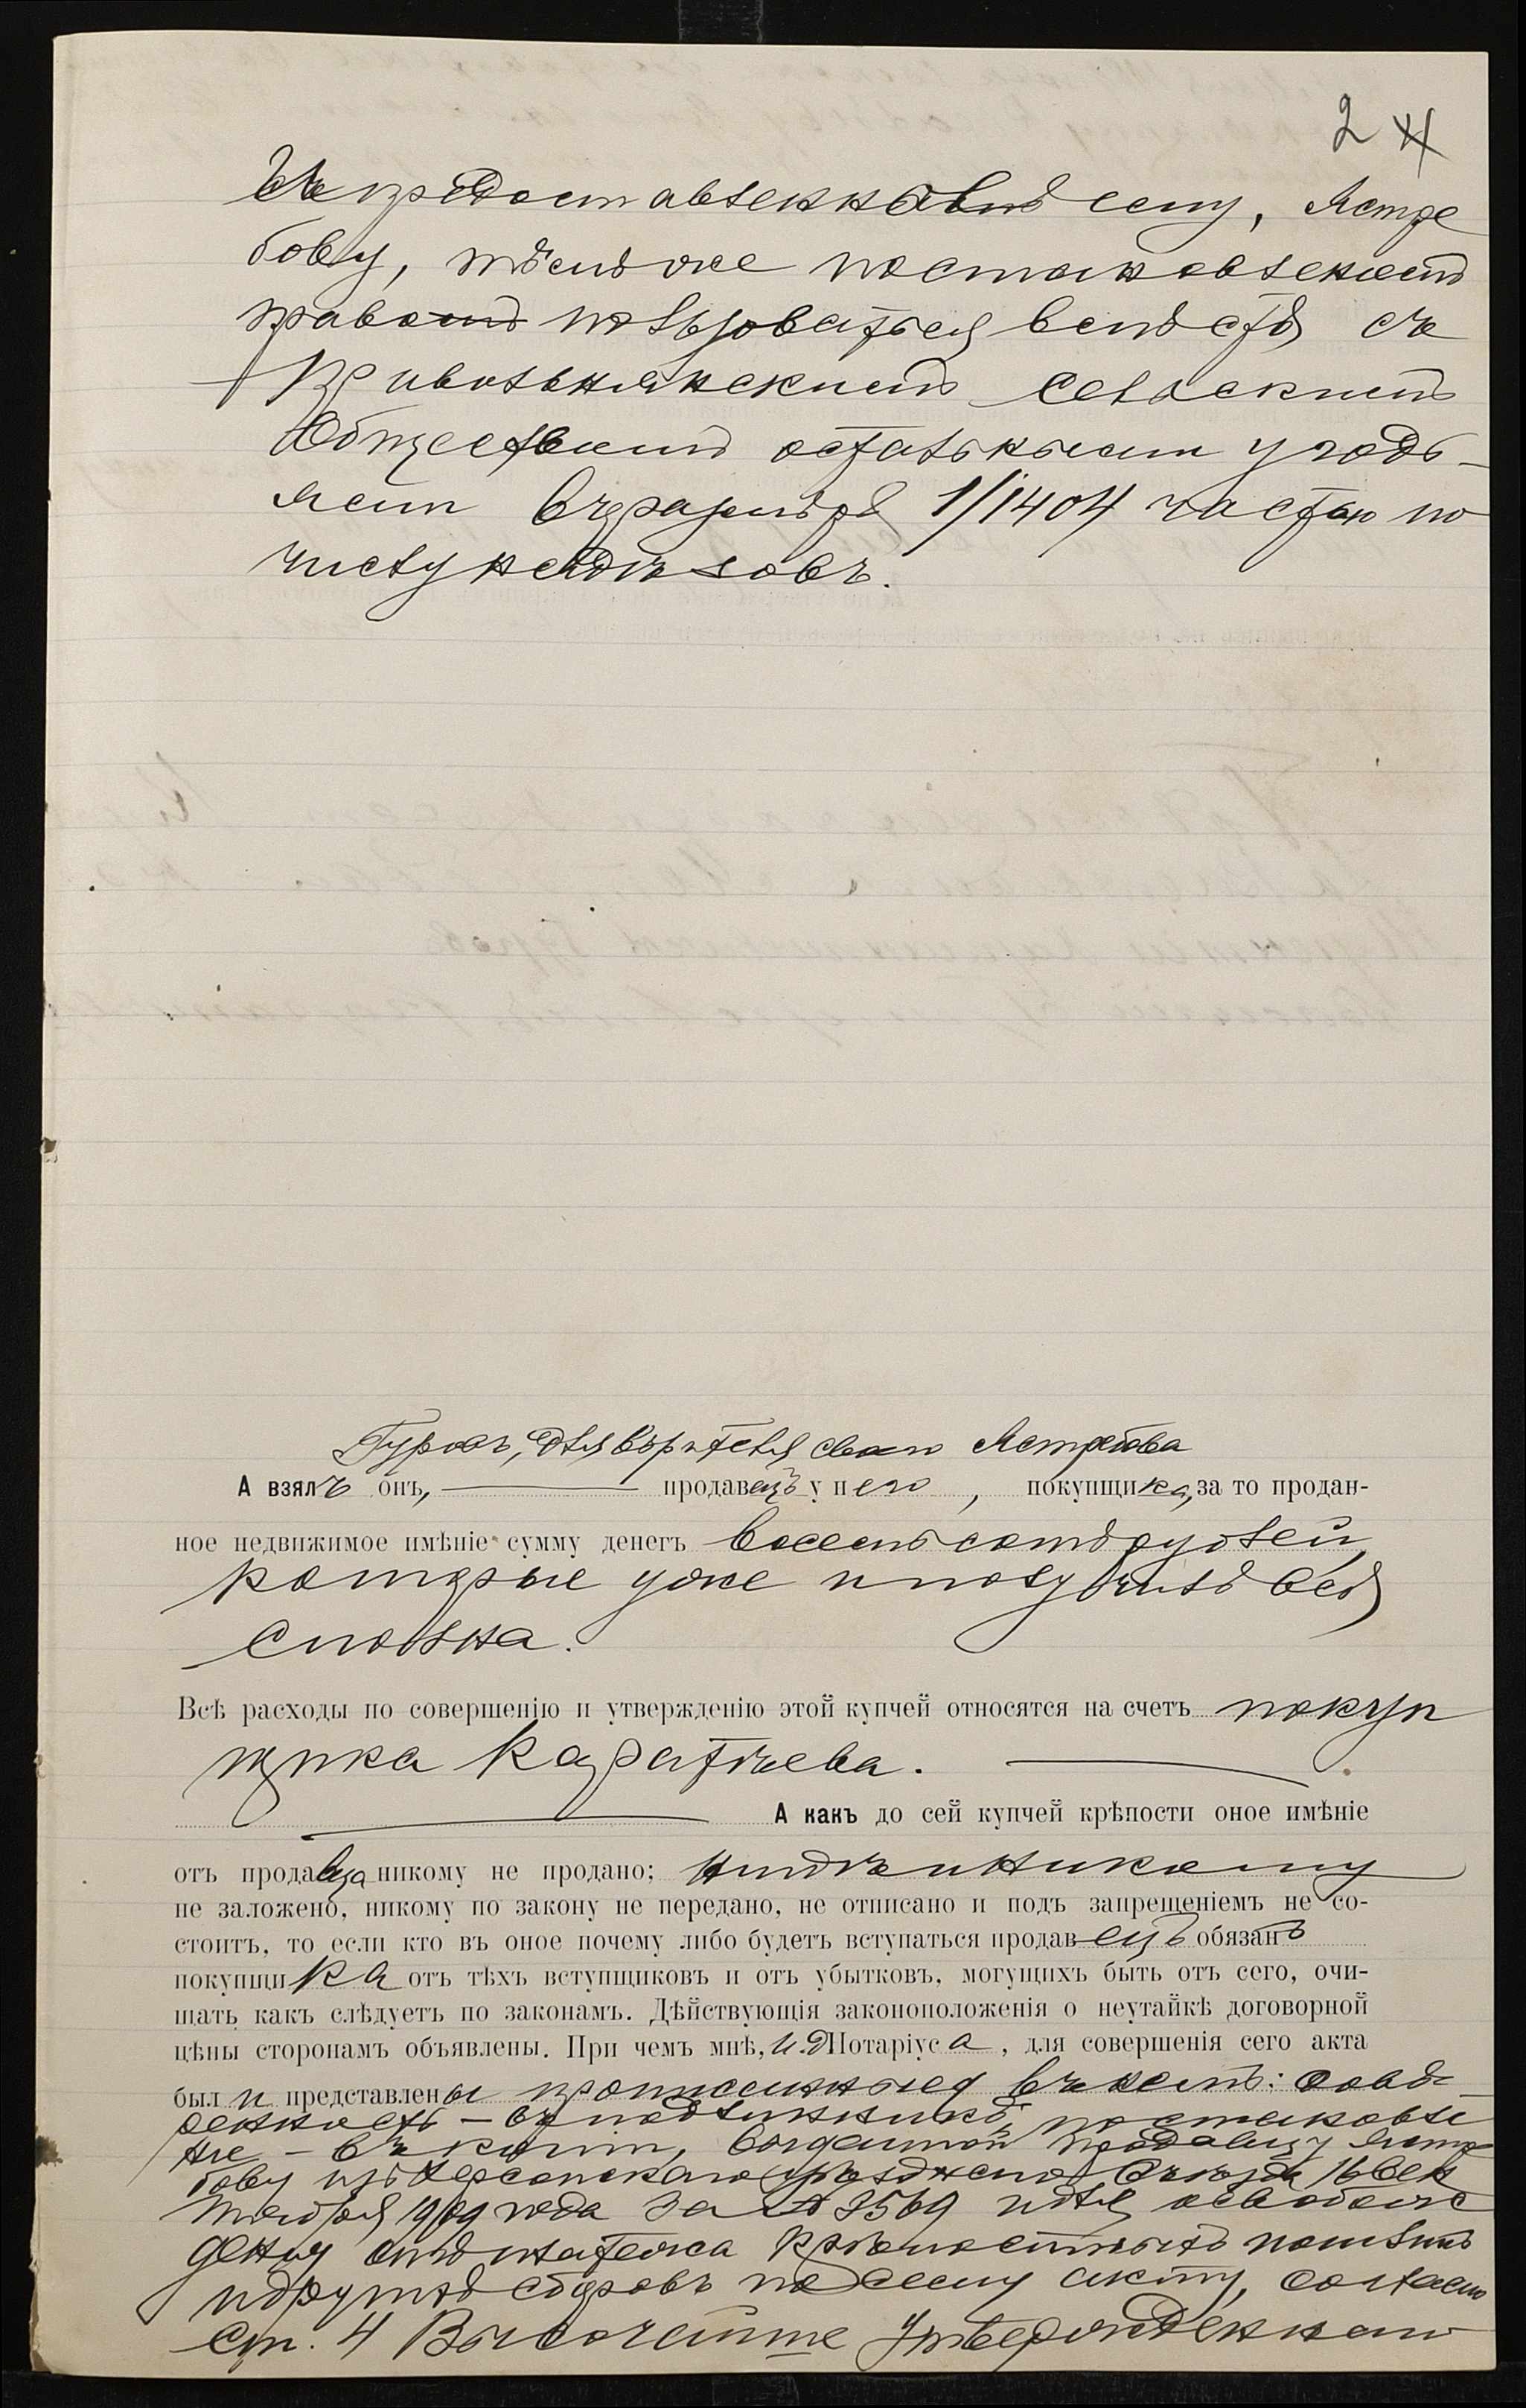 2
съ предоставленнымъ ему, Ястре
бову, тѣмъ же постановленіемъ
правомъ пользоваться вмѣстѣ съ
Привольнянскимъ Сельскимъ
Обществомъ остальными угодь-
ями въ размѣрѣ 1/1404 частью по
числу надѣловъ.
Гуровъ, довѣрителя своего Ястребова
А взялъ онъ, продавецъ у него, покупщика, за то продан-
ное недвижимое имѣніе сумму денегъ восемьсотъ рублей,
которые уже и получилъ всѣ
сполна.
Всѣ расходы по совершенію и утвержденію этой купчей относятся на счетъ покуп
щика Каратѣева.
А какъ до сей купчей крѣпости оное имѣніе
отъ продавца никому не продано; нигдѣ и никому
не заложено, никому по закону не передано, не отписано и подъ запрещеніемъ не со-
стоитъ, то если кто въ оное почему либо будетъ вступаться продавецъ обязанъ
покупщика отъ тѣхъ вступщиковъ и отъ убытковъ, могущихъ быть отъ сего, очи-
щать какъ слѣдуетъ по законамъ. Дѣйствующія законоположенія о неутайкѣ договорной
цѣны сторонамъ объявлены. При чемъ мнѣ, И.д. Нотаріуса, для совершенія сего акта
были представлены прописанныя въ немъ: довѣ-
ренность – въ подлинникѣ, постановле
ніе – въ копіи, выданной продавцу Ястре
бову изъ Херсонскаго Уѣзднаго Съѣзда 16 Сен
тября 1909 года за № 3569 и для освобож
денія отъ платежа крѣпостныхъ пошлинъ
и другихъ сборовъ по сему акту, согласно
ст. 4 Высочайше Утвержденнаго